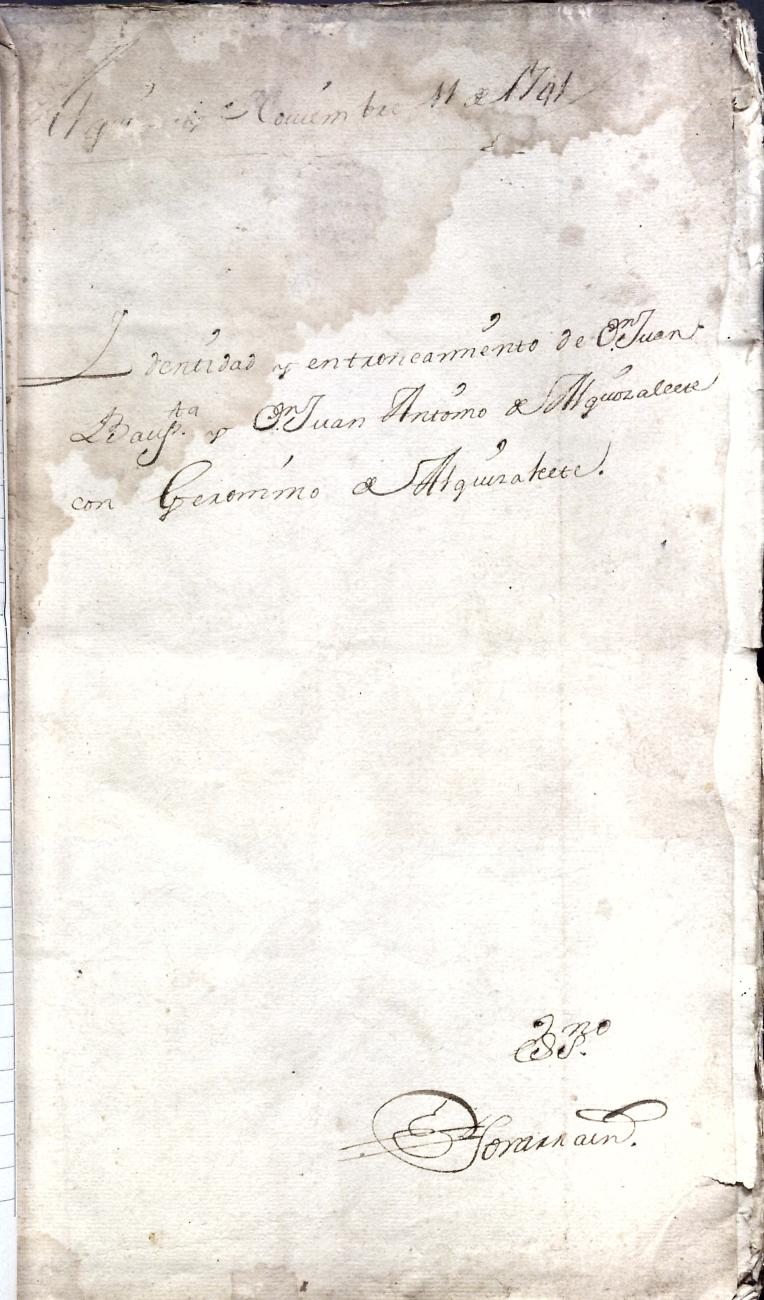 Noviembre 11 de 1741
Identidad y entroncamiento de Dn Juan
Baupta. y Dn Juan Antonio de Alquizalecte
con Geronimo de Alquizalete.
Essno
Lorarrain.